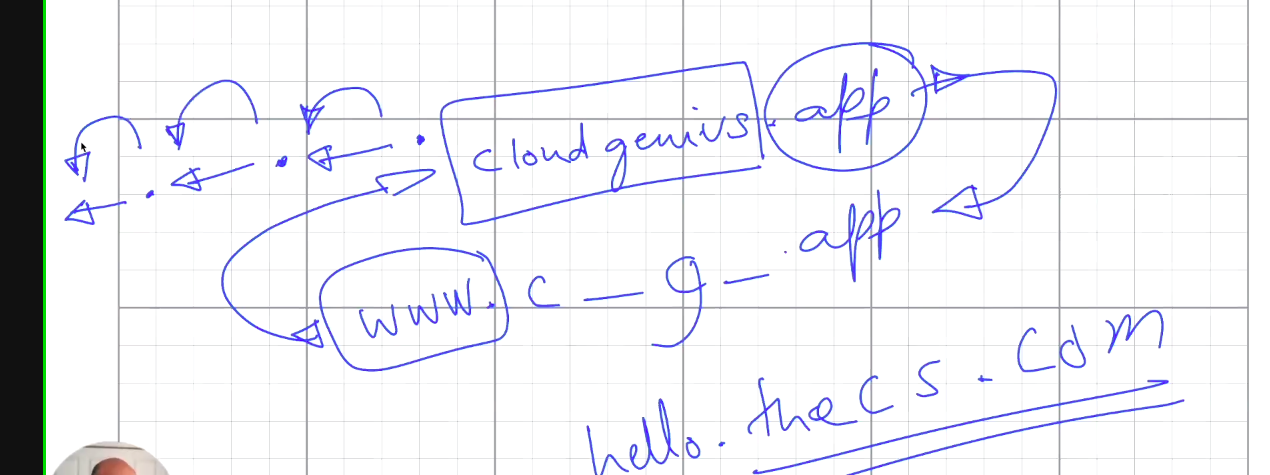 cloudgenius.app
www.c — g — .app
hello.thecs.com